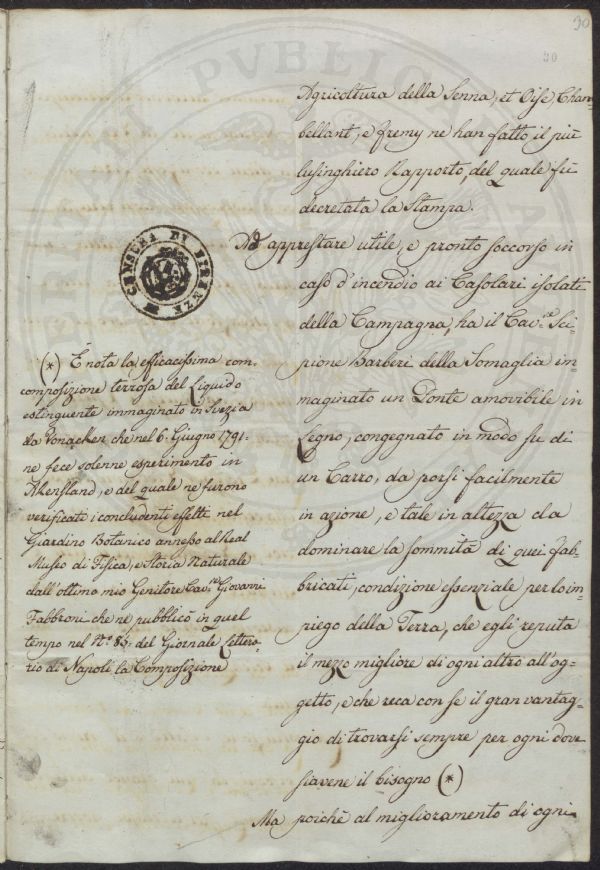 30
30
Agricoltura della Senna, et Oise, Cham=
bellant, e Fremy ne han fatto il più
lusinghiero Rapporto, del quale fù
decretata la Stampa.
Ad apprestare utile, e pronto soccorso in
caso d'incendio ai Casolari isolati
della Campagna, ha il Cav.re Sci=
pione Barberi della Somaglia im=
maginato un Ponte amovibile in
Legno, congegnato in modo su di
un Carro, da porsi facilmente
in azione, e tale in altezza da
dominare la sommità di quei fab=
bricati, condizione essenziale per l'oim=
piego della Terra, che egli reputa
il mezzo migliore di ogni altro all'og=
getto, e che reca con se il gran vantag=
gio di trovarsi sempre per ogni dove
siavene il bisogno (*)
Ma poichè al miglioramento di ogni
CENSURA DI FIRENZE
(*) È nota la efficacissima com=
composizione terrosa del Liquido
estinguente immaginato in Svezia
da Vonacken che nel 6. Giugno 1791.
ne fece solenne esperimento in
e del quale ne furono
verificati i concludenti effetti nel
Giardino Botanico annesso al Real
Museo di Fisica, e Storia Naturale
dall'ottimo mio Genitore Cav.re Giovanni
Fabbroni che ne pubblicò in quel
tempo nel N.o 85. del Giornale Lettera=
rio di Napoli la Composizione